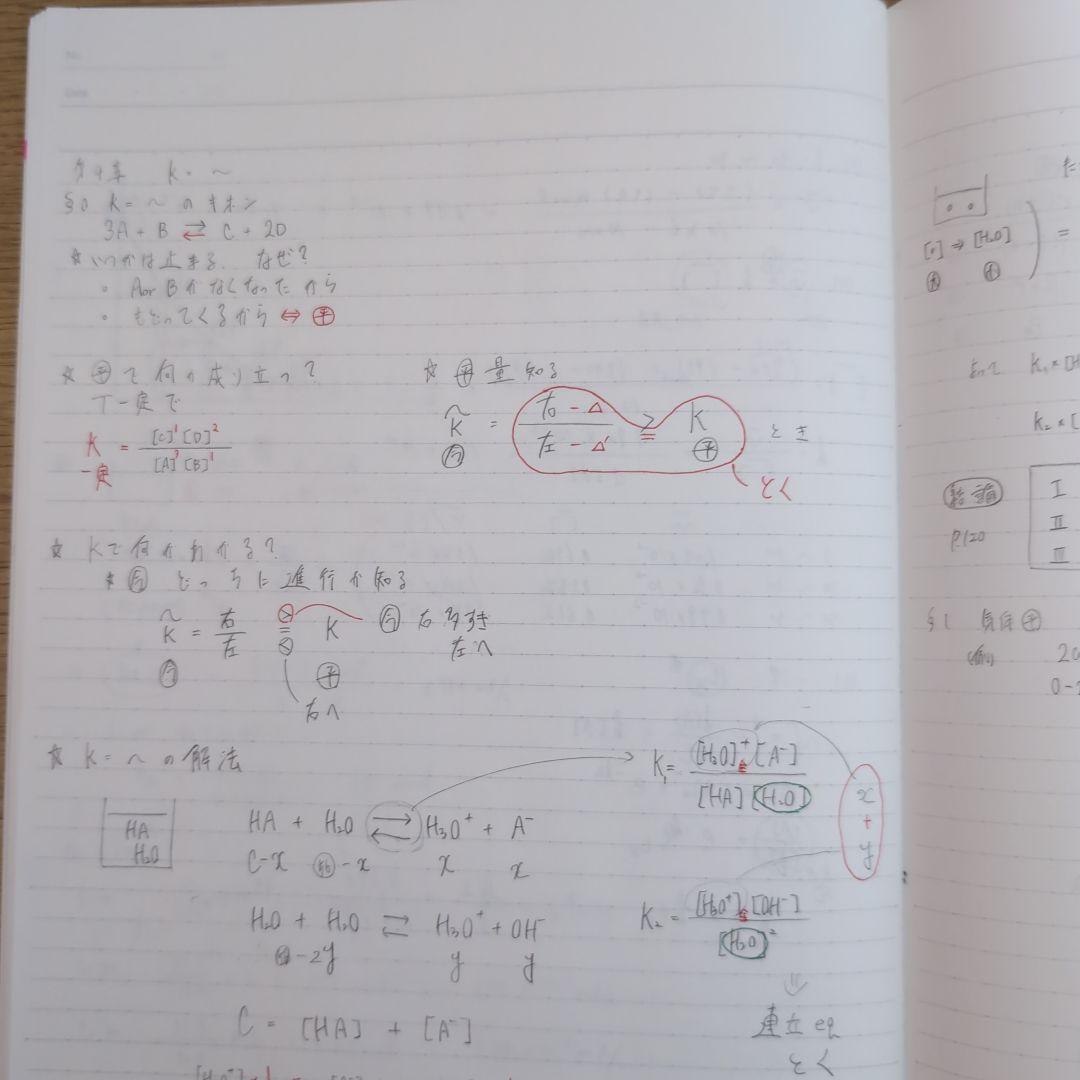 K = ~
§0 K = ~ のキホン
3A + B ⇄ C + 2D
☆ いつかは止まる. なぜ?
・ A or B がなくなったから
・ もどってくるから ⇔ ㊥
☆ 平 で何が成り立つ?
T一定で
K = [C]¹[D]² / [A]³[B]¹
一定
☆ 平 量 知る
K̃ = 右 - Δ / 左 - Δ' ≧ K とき
平
とく
☆ Kで何がわかる?
☆ どっちに進行か知る
K̃ = 右 / 左 K 右多すぎ
左へ
平
右へ
☆ K = ~ の解法
HA
H₂O
HA + H₂O ⇄ H₃O⁺ + A⁻
C-x -x x x
H₂O + H₂O ⇄ H₃O⁺ + OH⁻
-2y y y
C = [HA] + [A⁻]
K₁ = [H₃O]⁺[A⁻] / [HA][H₂O]
x
+
y
K₂ = [H₃O⁺][OH⁻] / [H₂O]²
⇓
連立 eq
とく
[H₂O]
=
K₁ × [H
K₂ × [
結論
P120
I
II
III
§1